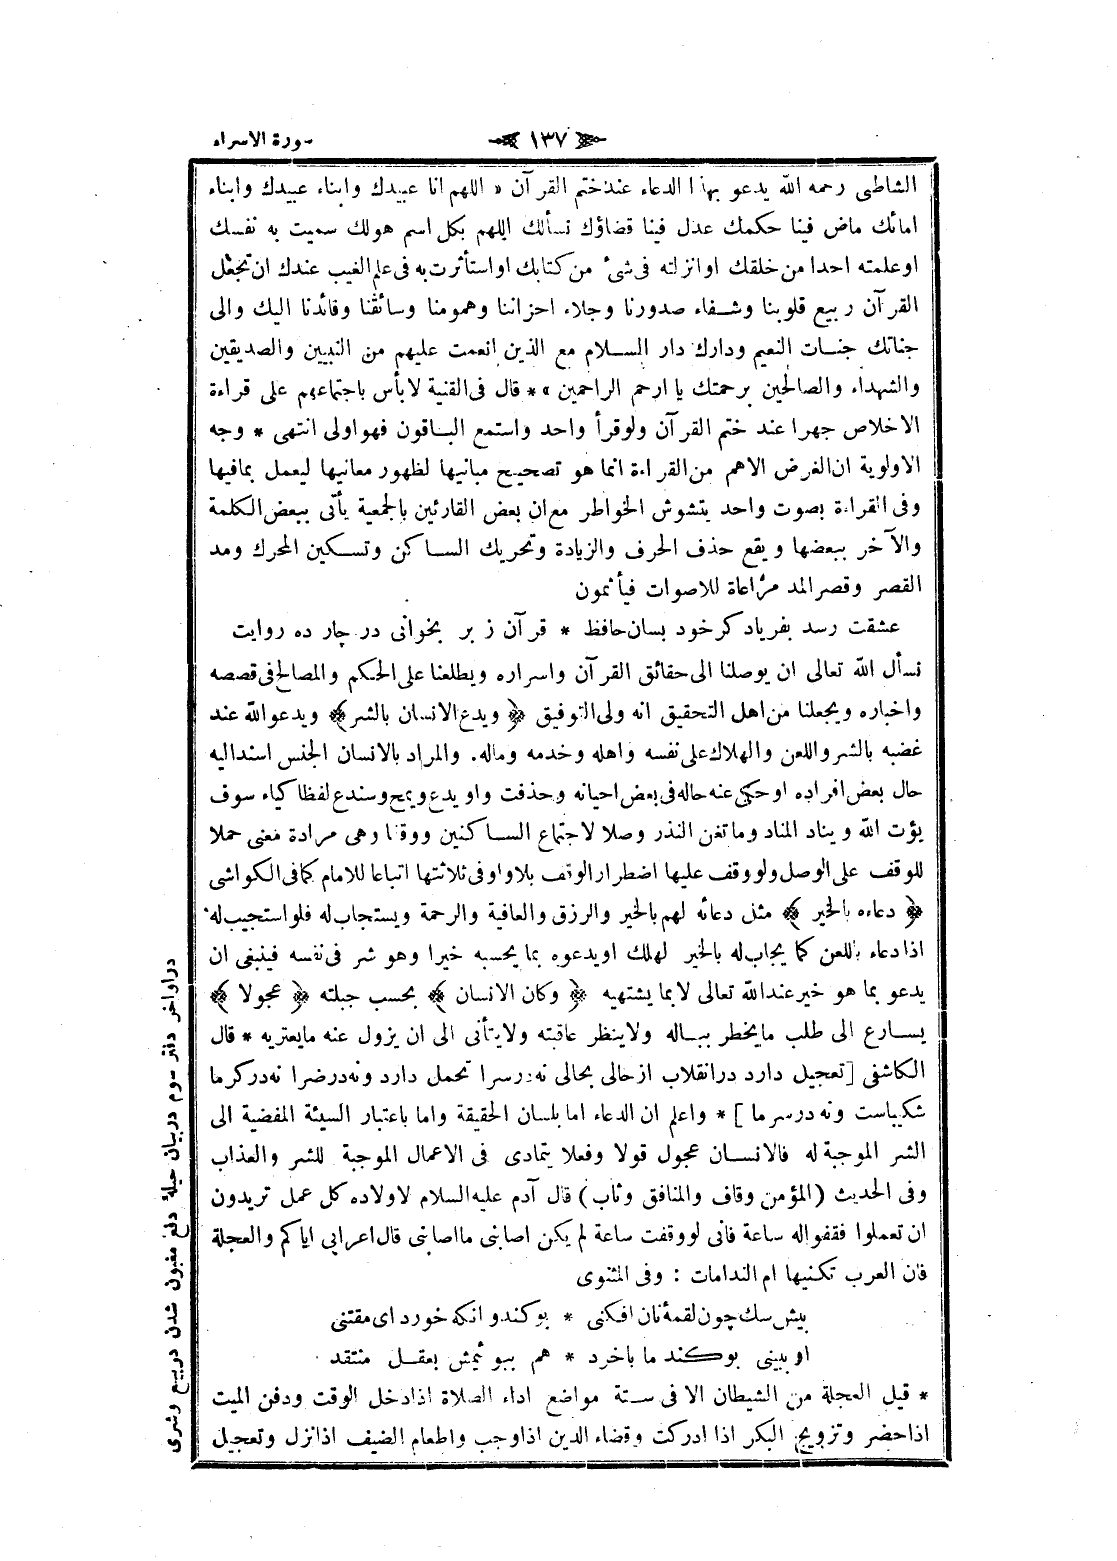 سورة الاسراء
١٣٧
الشاطبى رحمه الله يدعو بهذا الدعاء عند ختم القرآن « اللهم انا عبيدك وابناء عبيدك وابناء
امائك ماض فينا حكمك عدل فينا قضاؤك نسألك اللهم بكل اسم هولك سميت به نفسك
اوعلمته احدا من خلقك اوانزلته فى شئ من كتابك اواستأثرت به فى علم الغيب عندك ان تجعل
القرآن ربيع قلوبنا وشفاء صدورنا وجلاء احزاننا وهمومنا وسائقنا وقائدنا اليك والى
جناتك جنات النعيم ودارك دار السلام مع الذين انعمت عليهم من النبيين والصديقين
والشهداء والصالحين برحمتك يا ارحم الراحمين » * قال فى القنية لابأس باجتماعهم على قراءة
الاخلاص جهرا عند ختم القرآن ولوقرأ واحد واستمع الباقون فهو اولى انتهى * وجه
الاولوية ان الغرض الاهم من القراءة انما هو تصحيح مبانيها لظهور معانيها ليعمل بمافيها
وفى القراءة بصوت واحد يتشوش الخواطر مع ان بعض القارئين بالجمعية يأتى ببعض الكلمة
والآخر ببعضها ويقع حذف الحرف والزيادة وتحريك الساكن وتسكين المحرك ومد
القصر وقصر المد مراعاة للاصوات فيأثمون
عشقت رسد بفرياد كر خود بسان حافظ * قرآن ز بر بخوانى در چار ده روايت
نسأل الله تعالى ان يوصلنا الى حقائق القرآن واسراره ويطلعنا على الحكم والمصالح فى قصصه
واخباره ويجعلنا من اهل التحقيق انه ولى التوفيق ﴿ ويدع الانسان بالشر ﴾ ويدعو الله عند
غضبه بالشر واللعن والهلاك على نفسه واهله وخدمه وماله. والمراد بالانسان الجنس اسنداليه
حال بعض افراده اوحكى عنه حاله فى بعض احيانه وحذفت واو يدع ويمح وسندع لفظا كياء سوف
يؤت الله ويناد المناد وما تغن النذر وصلا لاجتماع الساكنين ووقفا وهى مرادة معنى حملا
للوقف على الوصل ولو وقف عليها اضطرارا لوقف بلا واو فى ثلاثتها اتباعا للامام كما فى الكواشى
﴿ دعاءه بالخير ﴾ مثل دعائه لهم بالخير والرزق والعافية والرحمة ويستجاب له فلو استجيب له
اذا دعاء باللعن كما يجاب له بالخير لهلك اويدعوه بما يحسبه خيرا وهو شر فى نفسه فينبغى ان
يدعو بما هو خير عند الله تعالى لابما يشتهيه ﴿ وكان الانسان ﴾ بحسب جبلته ﴿ عجولا ﴾
يسارع الى طلب مايخطر بباله ولاينظر عاقبته ولايتأنى الى ان يزول عنه مايعتريه * قال
الكاشفى [ تعجيل دارد درانقلاب از حالى بحالى نه درسرا تحمل دارد ونه درضرا نه دركرما
شكيباست ونه درسرما ] * واعلم ان الدعاء اما بلسان الحقيقة واما باعتبار السيئة المفضية الى
الشر الموجبة له فالانسان عجول قولا وفعلا يتمادى فى الاعمال الموجبة للشر والعذاب
وفى الحديث (المؤمن وقاف والمنافق وثاب) قال آدم عليه السلام لاولاده كل عمل تريدون
ان تعملوا فقفواله ساعة فانى لووقفت ساعة لم يكن اصابنى مااصابنى قال اعرابى اياكم والعجلة
فان العرب تكنيها ام الندامات : وفى المثنوى
پيش سك چون لقمۀ نان افكنى * بو كند وانكه خورد اى مقتنى
او ببينى بو كند ما با خرد * هم ببوئيمش بعقل منتقد
* قيل العجلة من الشيطان الا فى ستة مواضع اداء الصلاة اذا دخل الوقت ودفن الميت
اذا حضر وتزويج البكر اذا ادركت وقضاء الدين اذا وجب واطعام الضيف اذا نزل وتعجيل
در اواخر دفتر سوم در بيان حيلۀ دفع مغبون شدن در بيع وشرى